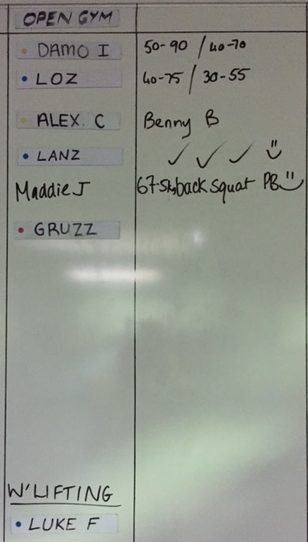 OPEN GYM
DAMO I 50-90 / 40-70
LOZ 40-75 / 30-55
ALEX. C Benny B
LANZ ✓ ✓ ✓ ü
Maddie J 67.5kg back squat PB ü
GRUZZ
W'LIFTING
LUKE F